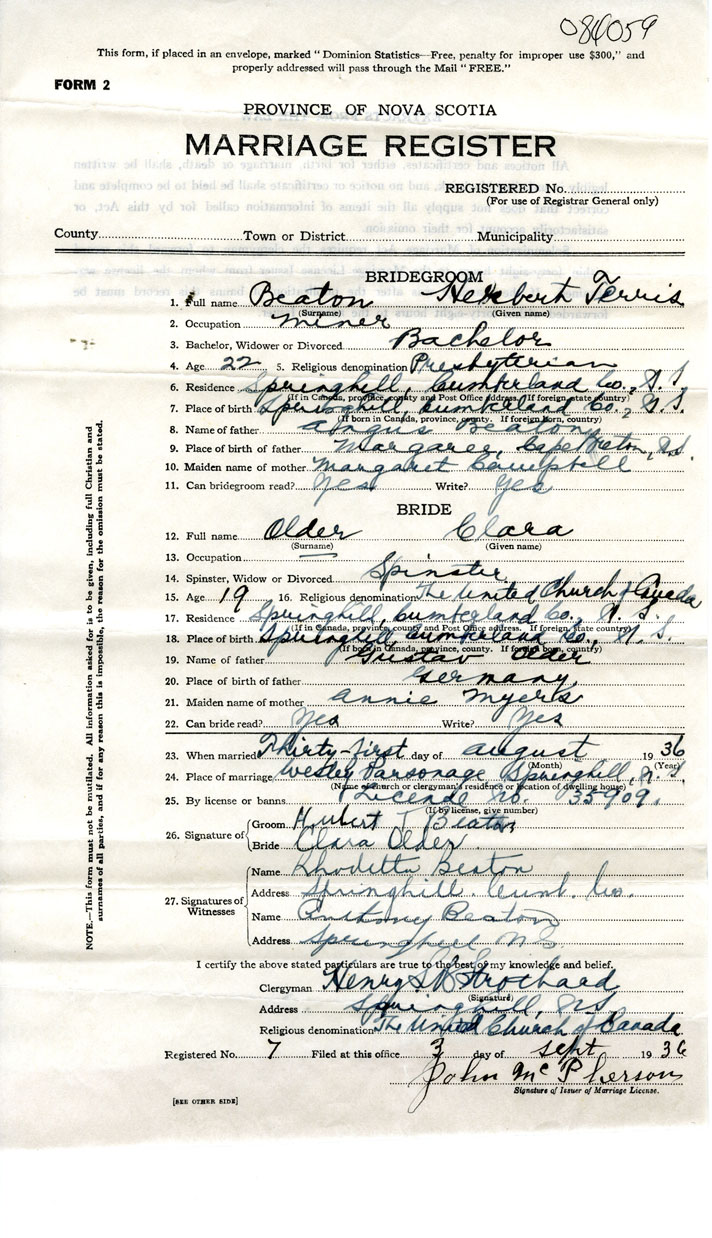 084059
This form, if placed in an envelope, marked “Dominion Statistics—Free, penalty for improper use $300,” and
properly addressed will pass through the Mail “FREE.”
FORM 2
PROVINCE OF NOVA SCOTIA
MARRIAGE REGISTER
REGISTERED No.
(For use of Registrar General only)
County Town or District Municipality
BRIDEGROOM
1. Full name Beaton Herbert Ferris
(Surname) (Given name)
2. Occupation miner
3. Bachelor, Widower or Divorced Bachelor
4. Age 22 5. Religious denomination Presbyterian
6. Residence Springhill, Cumberland Co., N. S.
(If in Canada, province, county and Post Office Address. If foreign, state country)
7. Place of birth Springhill, Cumberland Co., N. S.
(If born in Canada, province, county. If foreign born, country)
8. Name of father Angus Beaton
9. Place of birth of father Margaree, Cape Breton, N.S.
10. Maiden name of mother Margaret Campbell
11. Can bridegroom read? Yes Write? Yes
BRIDE
12. Full name Older Clara
(Surname) (Given name)
13. Occupation —
14. Spinster, Widow or Divorced Spinster
15. Age 19 16. Religious denomination The United Church of Canada
17. Residence Springhill, Cumberland Co., N. S.
(If in Canada, province, county and Post Office Address. If foreign, State country)
18. Place of birth Springhill, Cumberland Co., N. S.
(If born in Canada, province, county. If foreign born, country)
19. Name of father Gustav Older
20. Place of birth of father Germany
21. Maiden name of mother Annie Myers
22. Can bride read? Yes Write? Yes
23. When married Thirty-first day of august 1936
(Month) (Year)
24. Place of marriage Wesley Parsonage Springhill, N. S.
(Name of church or clergyman's residence or location of dwelling house)
25. By license or banns License no. 35909.
(If by license, give number)
26. Signature of
Groom Hubert T Beaton
Bride Clara Older
27. Signatures of Witnesses
Name Rhodetta Beaton
Address Springhill. Cumb. Co.
Name Anthony Beaton
Address Springhill N S.
I certify the above stated particulars are true to the best of my knowledge and belief.
Clergyman Henry S B Strothard
(Signature)
Address Springhill, N.S.
Religious denomination The United Church of Canada
Registered No. 7 Filed at this office 3 day of Sept 1936
John McPherson
Signature of Issuer of Marriage License.
[SEE OTHER SIDE]
NOTE.—This form must not be mutilated. All information asked for is to be given, including full Christian and
surnames of all parties, and if for any reason this is impossible, the reason for the omission must be stated.